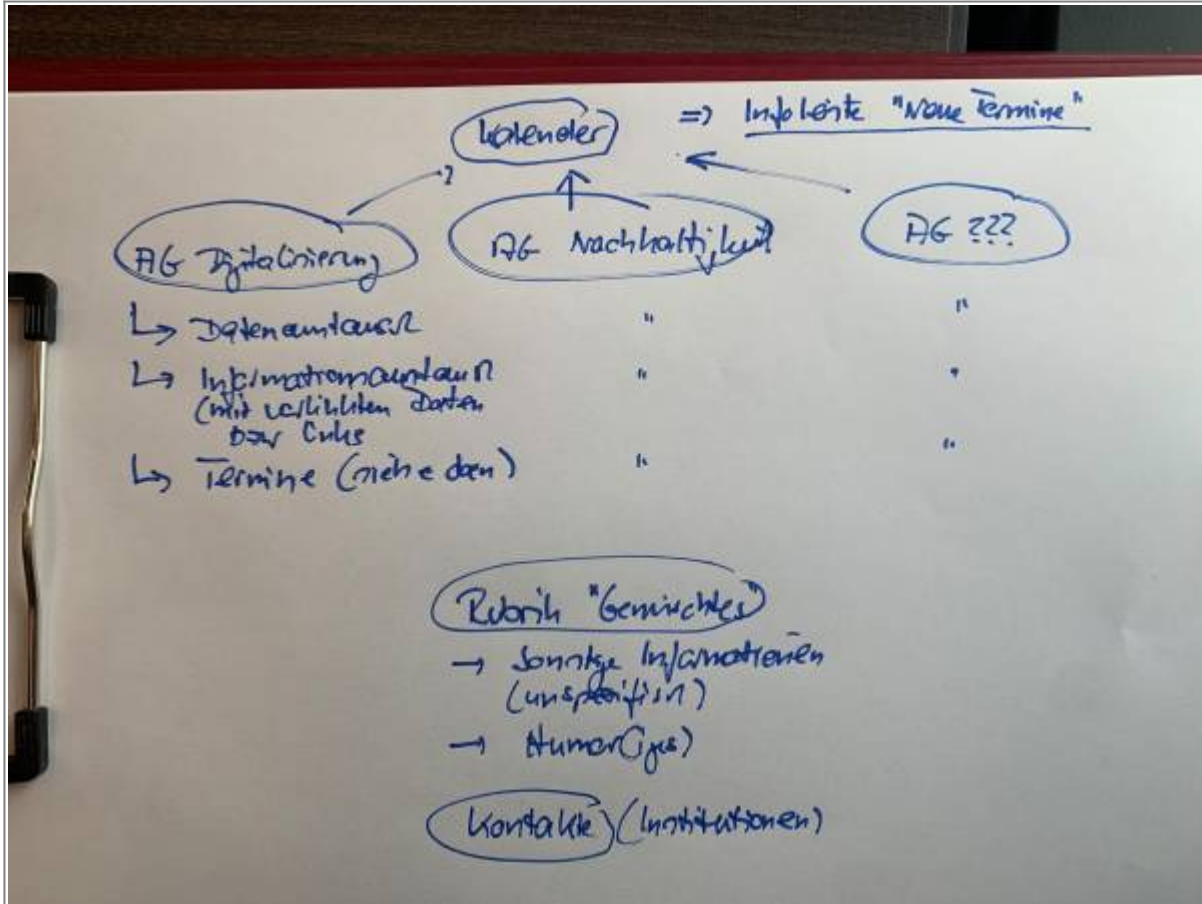 Kalender => Infoleiste "Neue Termine"
AG Digitalisierung AG Nachhaltigkeit AG ???
↳ Datenaustausch " "
↳ Informationsaustausch " "
(mit verlinkten Daten
bzw Links
↳ Termine (siehe oben) " "
Rubrik "Gemischtes"
→ Sonstige Informationen
(unspezifisch)
→ Humor(iges)
Kontakte (Institutionen)